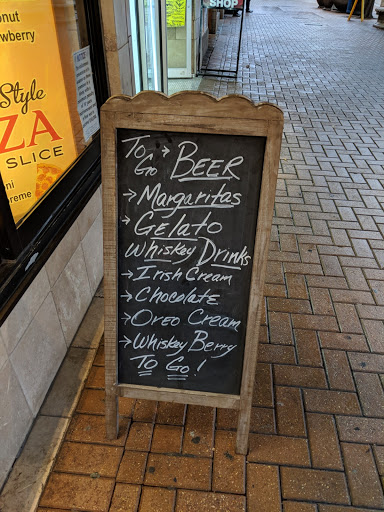 onut
wberry
Style
ZA
SLICE
ni
reme
SHOP
To Go → BEER
→ Margaritas
→ Gelato
Whiskey Drinks
→ Irish Cream
→ Chocolate
→ Oreo Cream
→ Whiskey Berry
To Go!